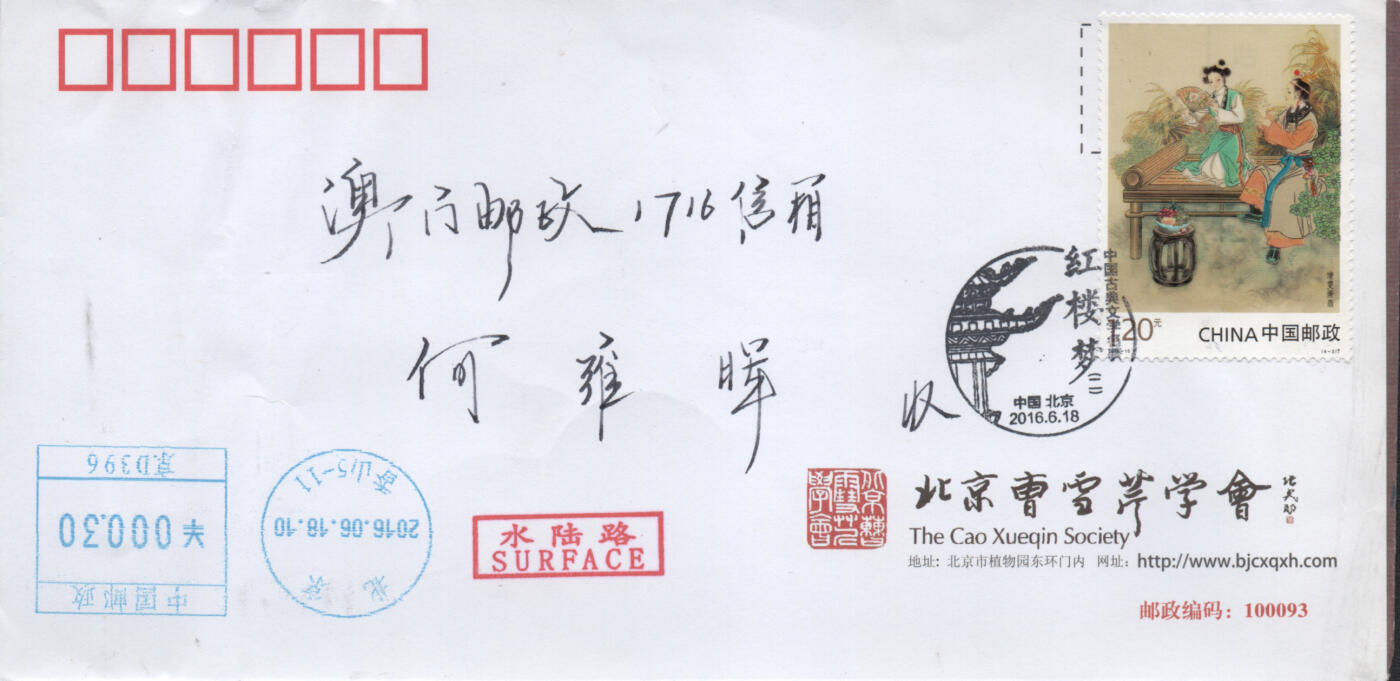 澳门邮政1716信箱
何雍晖
收
1.20元
CHINA中国邮政
中国古典文学名著
红楼梦(二)
中国 北京
2016.6.18
京D396
¥000.30
中国邮政
香山5-11
2016.06.18.10
北京
水陆路
SURFACE
北京曹雪芹学會
The Cao Xueqin Society
地址：北京市植物园东环门内 网址：http://www.bjcxqxh.com
邮政编码：100093